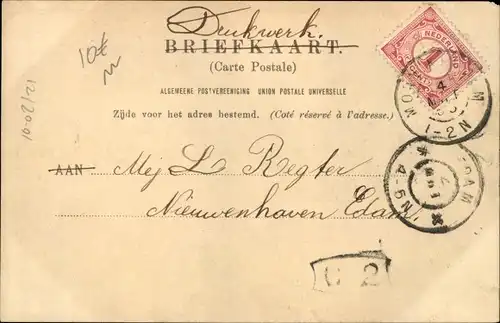 Drukwerk.
10€
BRIEFKAART.
(Carte Postale)
ALGEMEENE POSTVEREENIGING UNION POSTALE UNIVERSELLE
Zijde voor het adres bestemd. (Coté réservé à l'adresse.)
AAN Mej L Regter
Nieuwenhaven Edam
NEDERLAND
1
4
1-2N
EDAM
4-9N
G 2